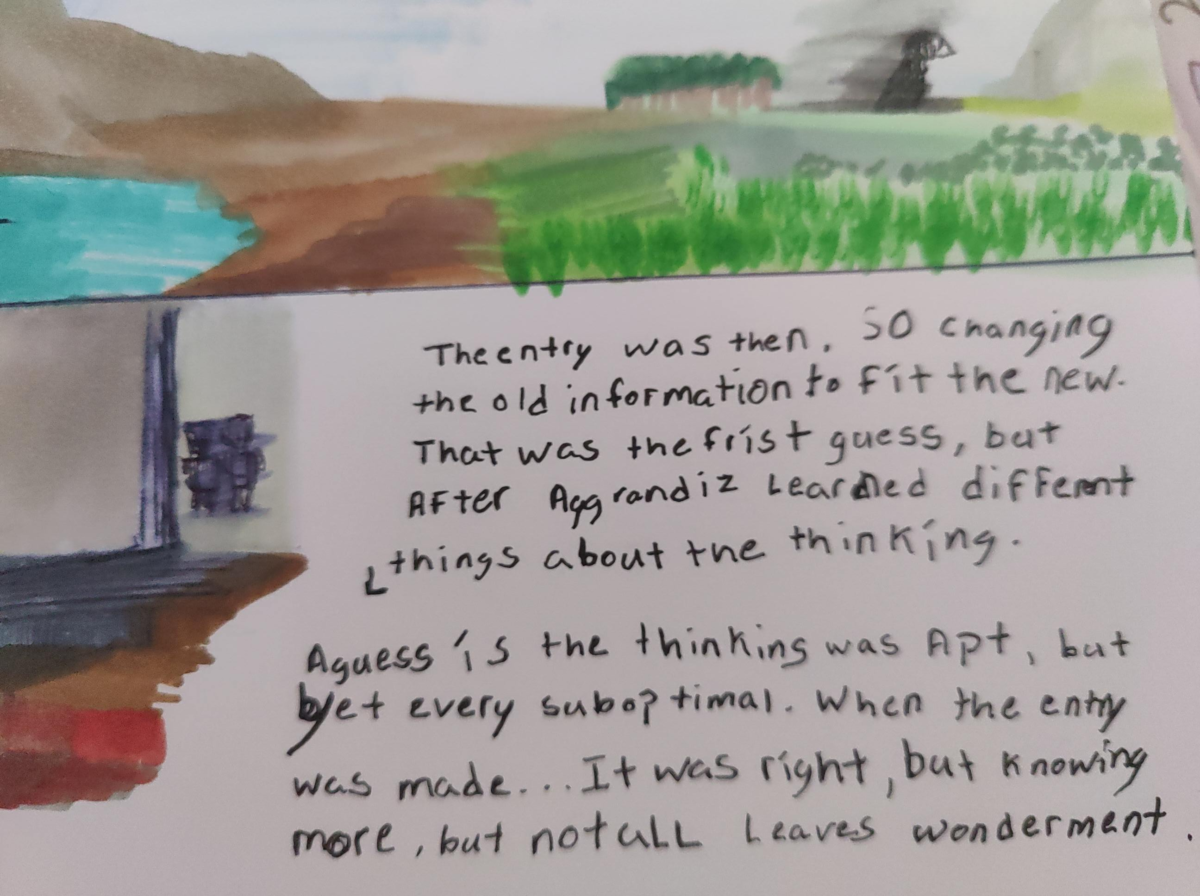 The entry was then. SO changing
the old information to Fit the new.
That was the frist guess, but
AFter Aggrandiz Learned different
things about the thinking.
Aguess is the thinking was Apt, but
yet every suboptimal. When the entry
was made... It was right, but Knowing
more, but not aLL Leaves wonderment.